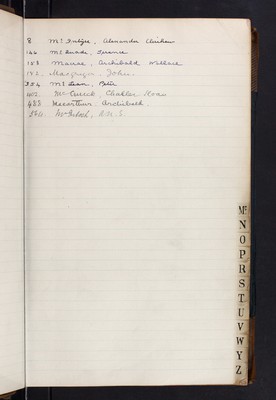 8 McIntyre, Alexander
144 McQuade, Terence
153 Macrae, Archibald Wallace
182 Macgregor, John
354 McLean, Peter
402 McCusick, Charles Ross
488 Macarthur Archibald
564 McIntosh, A.M.S.
Mc
N
O
P
R
S
T
U
V
W
Y
Z